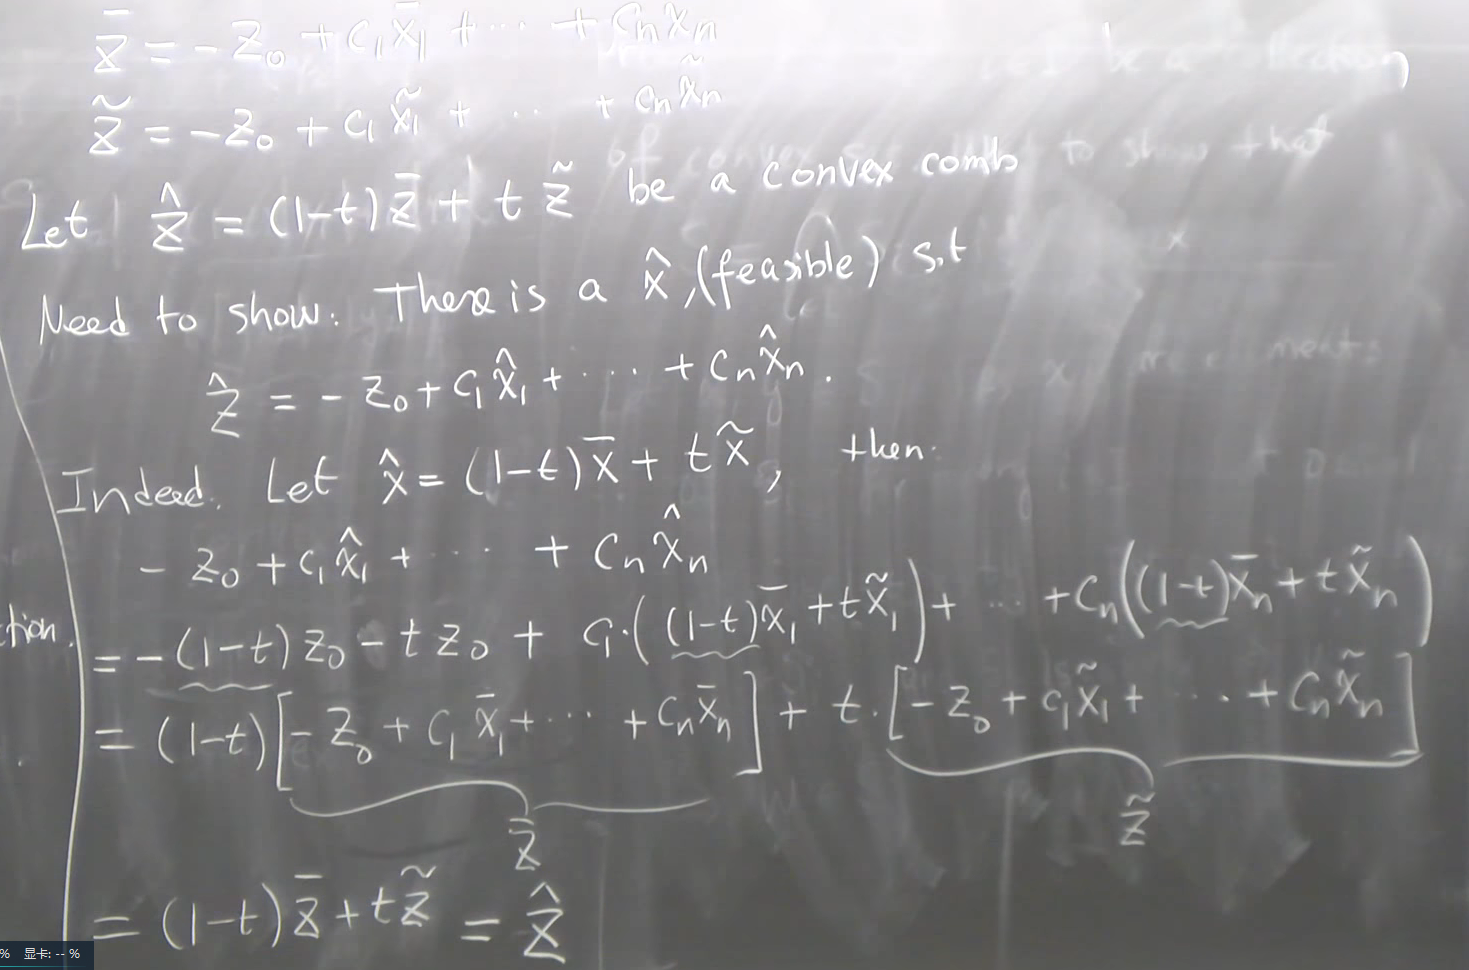 z̄ = -z₀ + c₁x̄₁ + ··· + cₙx̄ₙ
z̃ = -z₀ + c₁x̃₁ + ··· + cₙx̃ₙ
Let ẑ = (1-t)z̄ + t z̃ be a convex comb
Need to show: There is a x̂, (feasible) s.t
ẑ = -z₀ + c₁x̂₁ + ··· + cₙx̂ₙ.
Indeed. Let x̂ = (1-t)x̄ + t x̃, then.
- z₀ + c₁x̂₁ + ··· + cₙx̂ₙ
= -(1-t)z₀ - t z₀ + c₁·((1-t)x̄₁ + t x̃₁) + ··· + cₙ((1-t)x̄ₙ + t x̃ₙ)
= (1-t)[-z₀ + c₁x̄₁ + ··· + cₙx̄ₙ] + t·[-z₀ + c₁x̃₁ + ··· + cₙx̃ₙ]
z̄ z̃
= (1-t)z̄ + t z̃ = ẑ
tion.
% 显卡: -- %